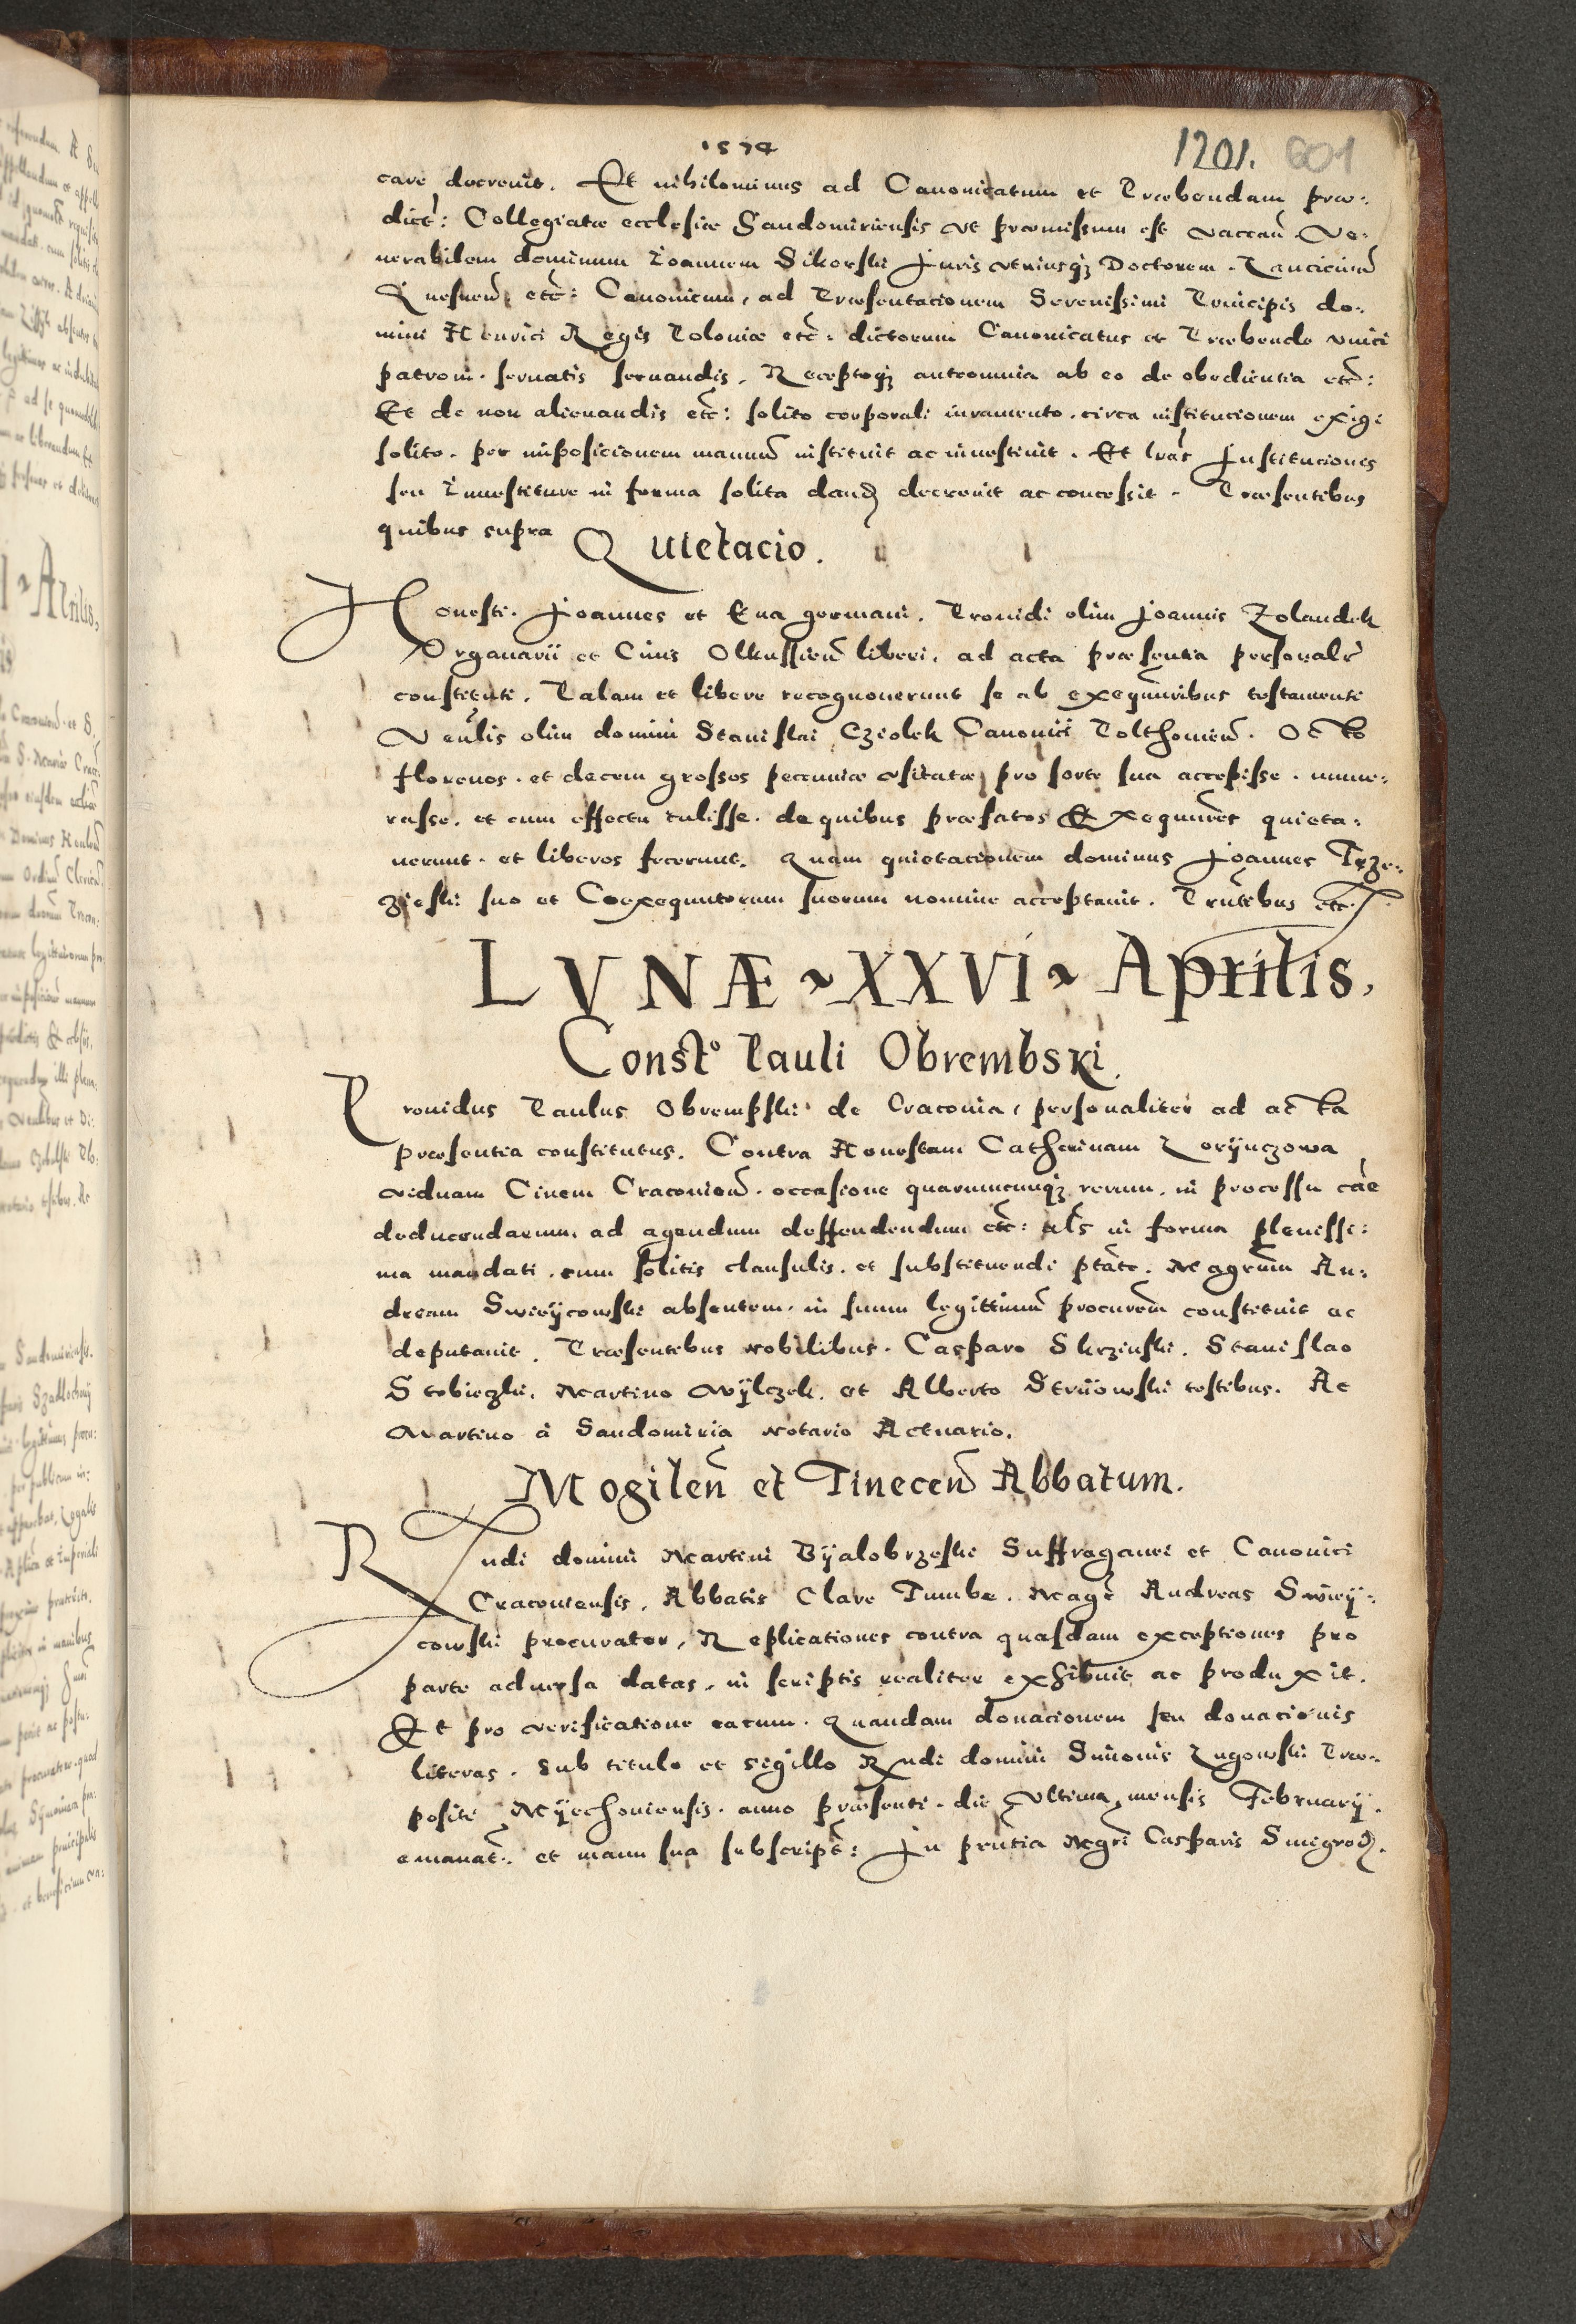 1574
1201. 601
care decrevit. Et nihilominus ad Canonicatum et Præbendam præ:
dict: Collegiatæ ecclesiæ Sandomiriensis ut præmissum est vaccan̄ Ve:
nerabilem dominum Ioannem Sikorski Juris utriusq̃ Doctorem. Lanciciēn̄
Gnesnen̄ etc̄: Canonicum, ad Præsentacionem Serenissimi Principis do:
mini Henrici Regis Poloniæ etc̄: dictorum Canonicatus et Præbende unici
patroni. servatis servandis, Receptoq̃ anteomnia ab eo de obedientia etc̄:
Et de non alienandis etc̄: solito corporali iuramento. circa institucionem exigi
solito. per impositionem manuū instituit ac investivit. Et lr̄as Institucionis
seu Investiture in forma solita dand̄ decrevit ac concessit. Præsentibus
quibus supra
Quietacio.
Honesti. Joannes et Eua germani, Providi olim Joannis Zolandek
Organarii et Ciuis Olkussien̄ liberi, ad acta præsentia personalr̄
constituti, Palam et libere recognoverunt se ab exequūribus testamenti
Vēnlis olim domini Stanislai Cziolek Canonici Polthouien̄. Octo
florenos. et decem grossos pecuniæ usitatæ pro sorte sua accepisse. nume:
rasse. et cum effectu tulisse. de quibus præfatos Exequūres quieta:
uerunt. et liberos fecerunt. Quam quietacionem dominus Joannes Trze:
zieski suo et Coexequutorum suorum nomine acceptauit. Prūtibus etc̄
LVNÆ ~ XXVI ~ Aprilis,
Const° Pauli Obrembski.
Prouidus Paulus Obrempski de Cracouia, personaliter ad acta
præsentia constitutus. Contra Honestam Catherinam Zorÿnczowa
viduam Ciuem Cracouien̄. occasione quarumcunq̃ rerum, in processu cāe
deducendarum, ad agendum deffendendum etc̄: al̄s in forma plenissi:
ma mandati. cum solitis clausulis. et substituendi ptāte. Magrum̄ An:
dream Swieÿcowski absentem. in suum legittimū procurēm constituit ac
deputauit. Præsentibus nobilibus. Casparo Skrzinski, Stanislao
Stobieczki, Martino Wÿlczek, et Alberto Struÿowski testibus. Ac
Martino à Sandomiria Notario Actuario.
Mogilen̄ et Tinecen̄ Abbatum.
Rndi domini Martini Bÿalobrzeski Suffraganei et Canonici
Cracouiensis, Abbatis Clare Tumbe. Magr̄ Andreas Swieÿ:
cowski procurator, Replicationes contra quasdam exceptiones pro
parte aduersa datas, in scriptis realiter exhibuit ac produxit.
Et pro verificatione earum. Quandam donacionem seu donacionis
literas. sub titulo et sigillo Rndi domini Simonis Lugowski Præ:
positi Mÿechouiensis. anno præsenti. die ultima mensis Februarÿ.
emanat̄: et manu sua subscript̄: In prn̄tia Mgri Casparis Smigrod̄.